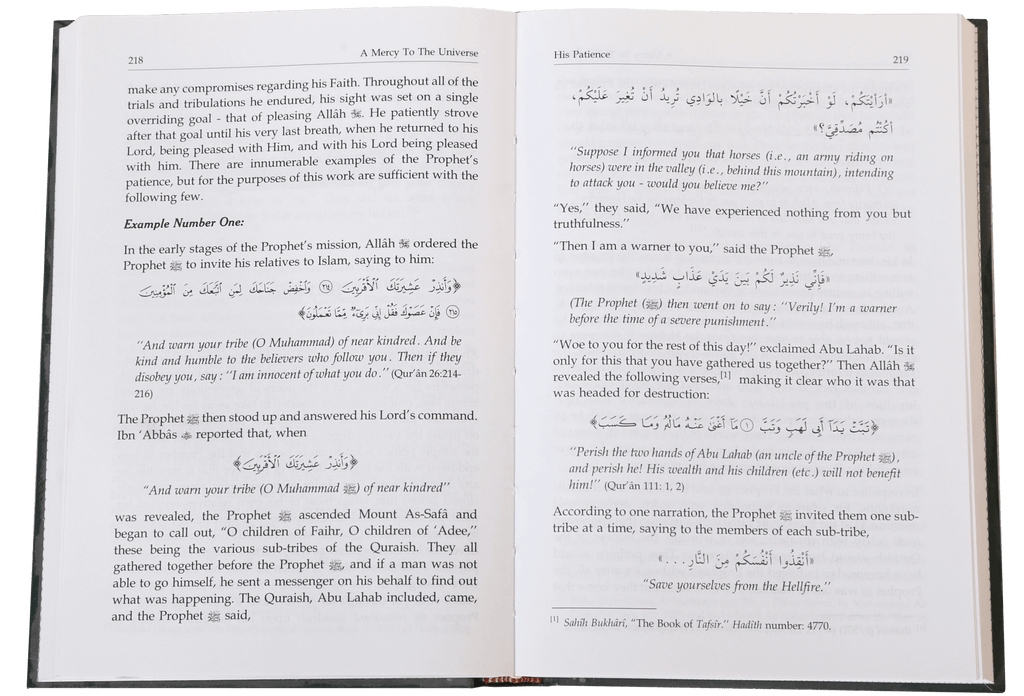 218
A Mercy To The Universe
make any compromises regarding his Faith. Throughout all of the
trials and tribulations he endured, his sight was set on a single
overriding goal - that of pleasing Allâh ﷻ. He patiently strove
after that goal until his very last breath, when he returned to his
Lord, being pleased with Him, and with his Lord being pleased
with him. There are innumerable examples of the Prophet's
patience, but for the purposes of this work are sufficient with the
following few.
Example Number One:
In the early stages of the Prophet's mission, Allâh ﷻ ordered the
Prophet ﷺ to invite his relatives to Islam, saying to him:
﴿وَأَنذِرْ عَشِيرَتَكَ ٱلْأَقْرَبِينَ ٢١٤ وَٱخْفِضْ جَنَاحَكَ لِمَنِ ٱتَّبَعَكَ مِنَ ٱلْمُؤْمِنِينَ
٢١٥ فَإِنْ عَصَوْكَ فَقُلْ إِنِّى بَرِىٓءٌ مِّمَّا تَعْمَلُونَ﴾
"And warn your tribe (O Muhammad) of near kindred. And be
kind and humble to the believers who follow you. Then if they
disobey you, say: "I am innocent of what you do." (Qur'ân 26:214-
216)
The Prophet ﷺ then stood up and answered his Lord's command.
Ibn 'Abbâs reported that, when
﴿وَأَنذِرْ عَشِيرَتَكَ ٱلْأَقْرَبِينَ﴾
"And warn your tribe (O Muhammad ﷺ) of near kindred"
was revealed, the Prophet ﷺ ascended Mount As-Safâ and
began to call out, "O children of Faihr, O children of 'Adee,"
these being the various sub-tribes of the Quraish. They all
gathered together before the Prophet ﷺ, and if a man was not
able to go himself, he sent a messenger on his behalf to find out
what was happening. The Quraish, Abu Lahab included, came,
and the Prophet ﷺ said,
His Patience
219
«أَرَأَيْتَكُمْ، لَوْ أَخْبَرْتُكُمْ أَنَّ خَيْلًا بالوَادِي تُرِيدُ أَنْ تُغِيرَ عَلَيْكُمْ،
أَكُنْتُم مُصَدِّقِيَّ؟»
"Suppose I informed you that horses (i.e., an army riding on
horses) were in the valley (i.e., behind this mountain), intending
to attack you - would you believe me?"
"Yes," they said, "We have experienced nothing from you but
truthfulness."
"Then I am a warner to you," said the Prophet ﷺ,
«فَإِنِّي نَذِيرٌ لَكُمْ بَينَ يَدَيْ عَذَابٍ شَدِيدٍ»
(The Prophet (ﷺ) then went on to say: "Verily! I'm a warner
before the time of a severe punishment."
"Woe to you for the rest of this day!" exclaimed Abu Lahab. "Is it
only for this that you have gathered us together?" Then Allâh ﷻ
revealed the following verses,[1] making it clear who it was that
was headed for destruction:
﴿تَبَّتْ يَدَآ أَبِى لَهَبٍ وَتَبَّ ١ مَآ أَغْنَىٰ عَنْهُ مَالُهُۥ وَمَا كَسَبَ﴾
"Perish the two hands of Abu Lahab (an uncle of the Prophet ﷺ),
and perish he! His wealth and his children (etc.) will not benefit
him!" (Qur'ân 111: 1, 2)
According to one narration, the Prophet ﷺ invited them one sub-
tribe at a time, saying to the members of each sub-tribe,
«أَنْقِذُوا أَنْفُسَكُمْ مِنَ النَّارِ...»
"Save yourselves from the Hellfire."
[1] Sahih Bukhârî, "The Book of Tafsîr." Hadîth number: 4770.